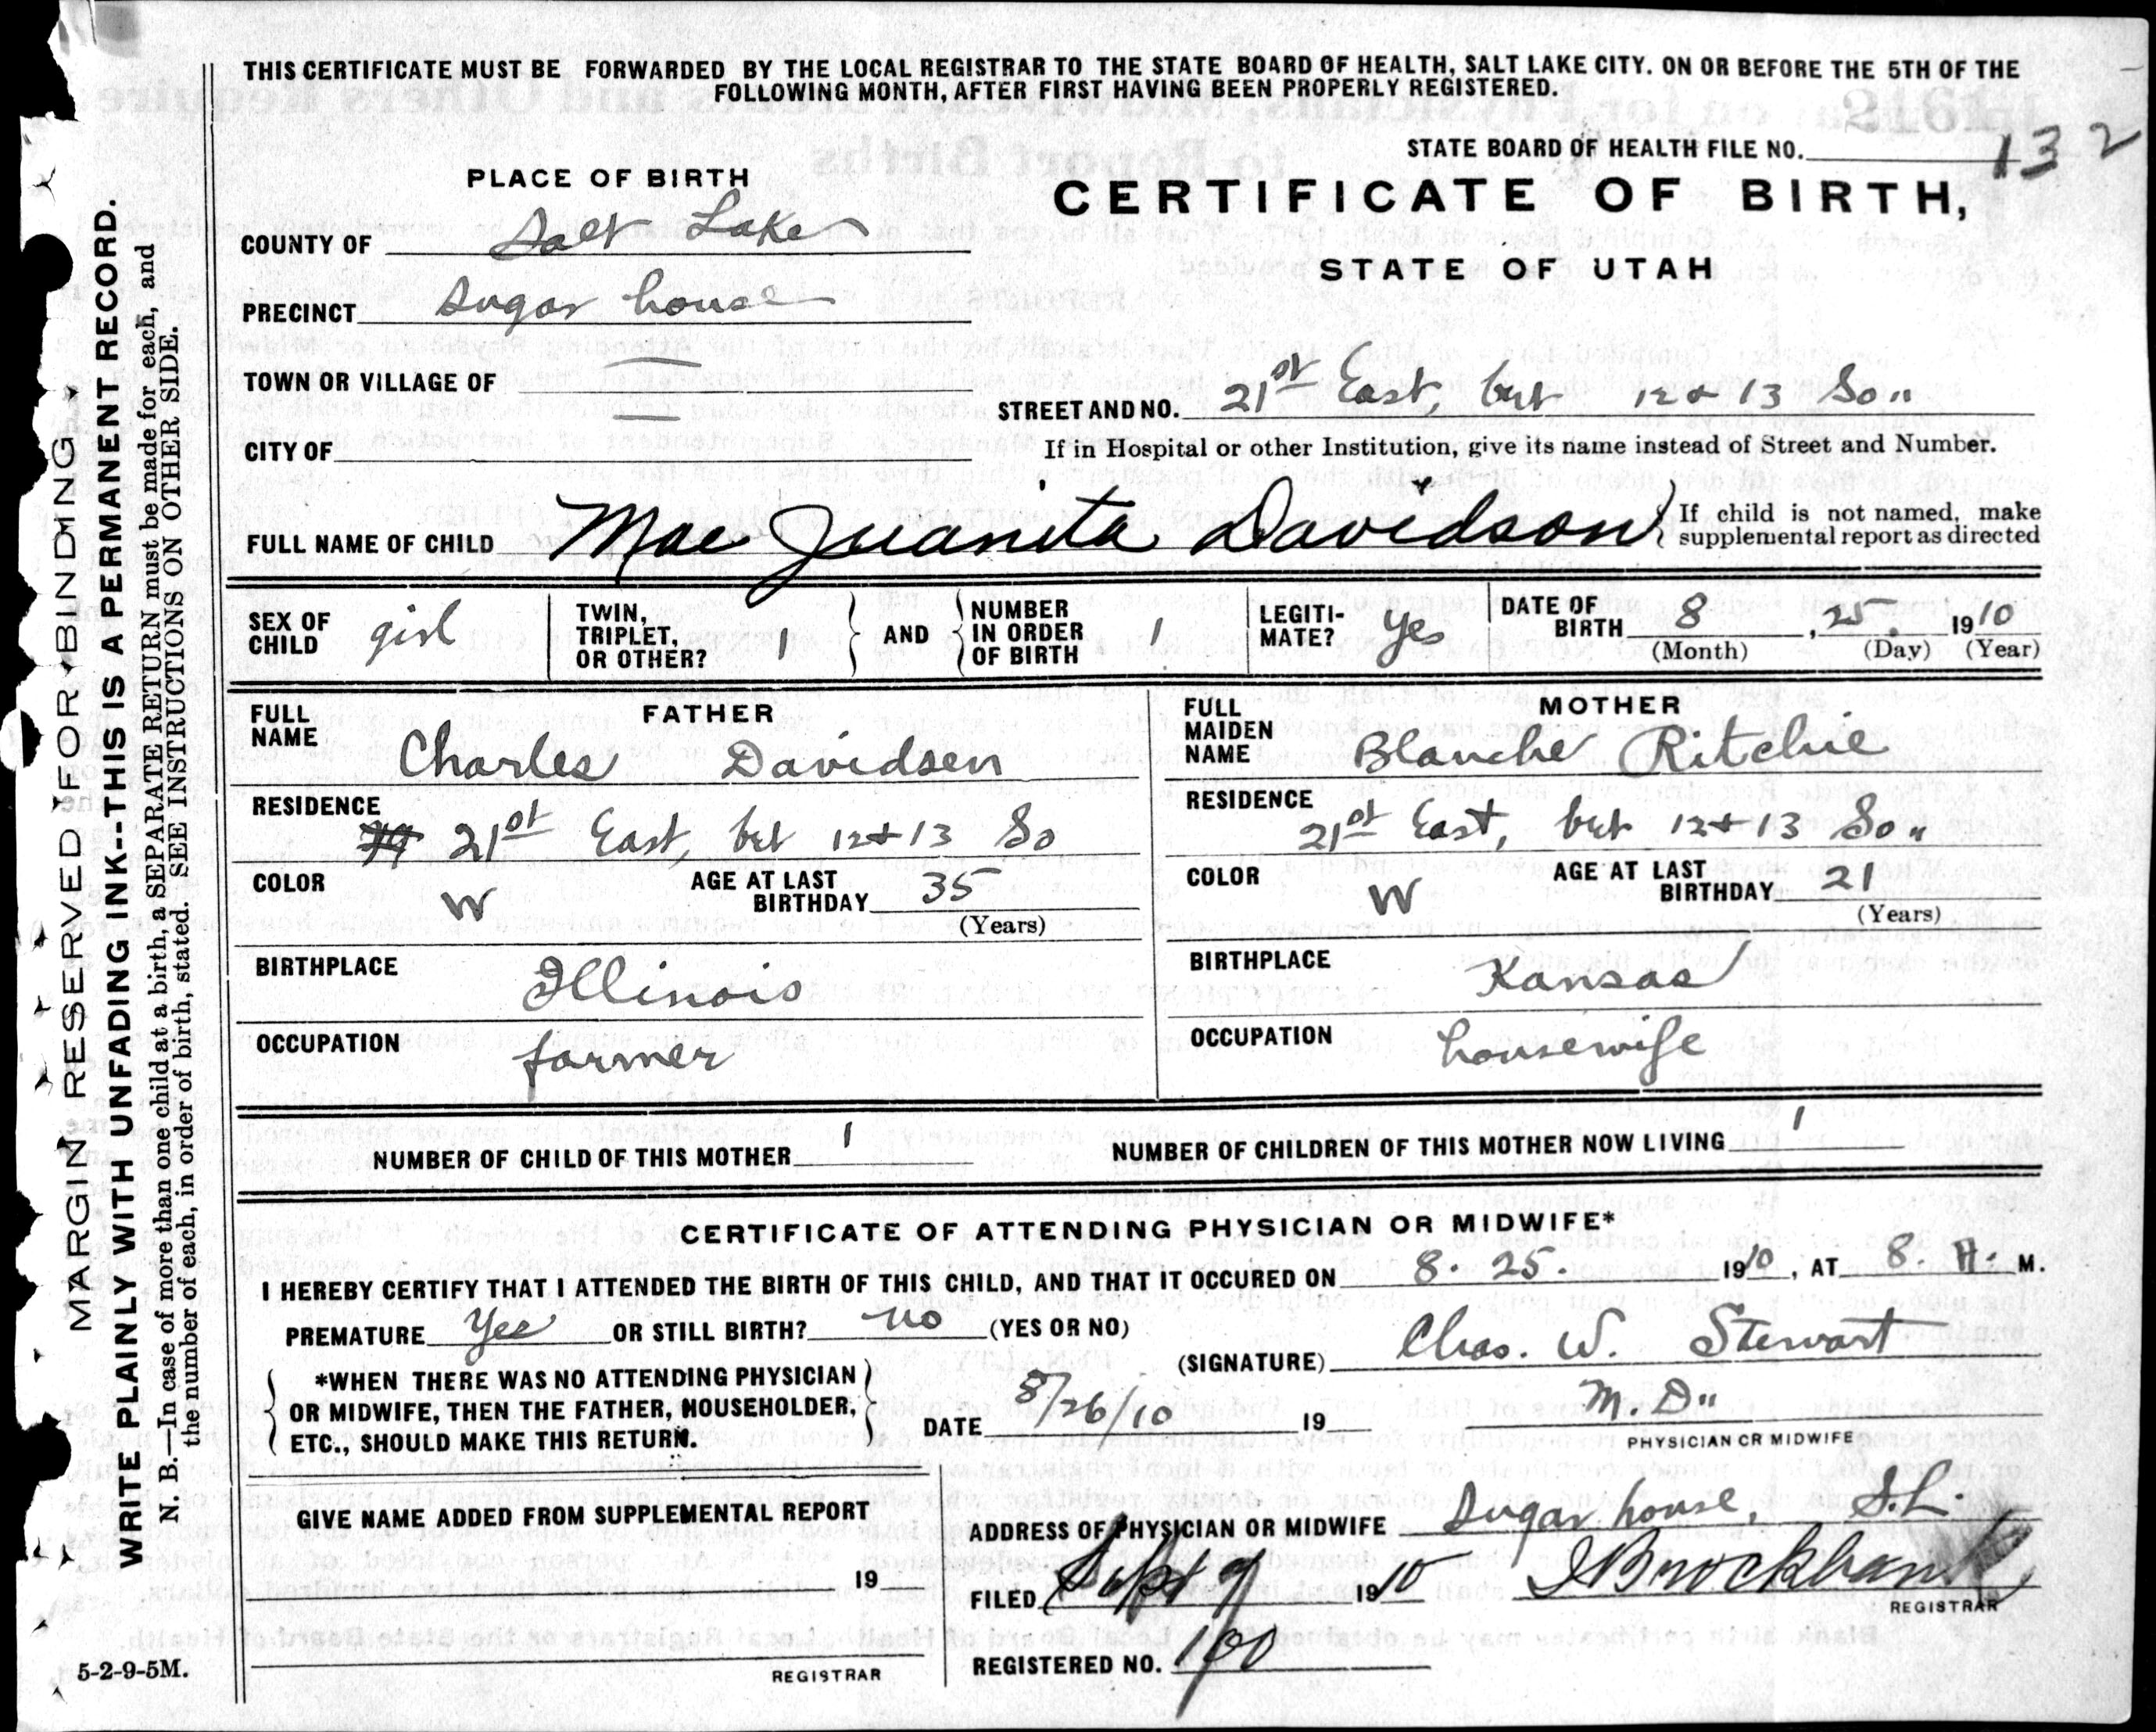 THIS CERTIFICATE MUST BE FORWARDED BY THE LOCAL REGISTRAR TO THE STATE BOARD OF HEALTH, SALT LAKE CITY. ON OR BEFORE THE 5TH OF THE
FOLLOWING MONTH, AFTER FIRST HAVING BEEN PROPERLY REGISTERED.
STATE BOARD OF HEALTH FILE NO. 132
PLACE OF BIRTH
CERTIFICATE OF BIRTH,
STATE OF UTAH
COUNTY OF Salt Lake
PRECINCT Sugar house
TOWN OR VILLAGE OF
STREET AND NO. 21st East, bet 12 & 13 So"
CITY OF
If in Hospital or other Institution, give its name instead of Street and Number.
FULL NAME OF CHILD Mae Juanita Davidson
If child is not named, make
supplemental report as directed
SEX OF CHILD girl
TWIN, TRIPLET, OR OTHER? 1
AND
NUMBER IN ORDER OF BIRTH 1
LEGITI-MATE? yes
DATE OF BIRTH 8, 25. 1910
(Month) (Day) (Year)
FATHER
FULL NAME Charles Davidsen
RESIDENCE 21st East, bet 12 & 13 So
COLOR W
AGE AT LAST BIRTHDAY 35
(Years)
BIRTHPLACE Illinois
OCCUPATION farmer
MOTHER
FULL MAIDEN NAME Blanche Ritchie
RESIDENCE 21st East, bet 12 & 13 So"
COLOR W
AGE AT LAST BIRTHDAY 21
(Years)
BIRTHPLACE Kansas
OCCUPATION housewife
NUMBER OF CHILD OF THIS MOTHER 1
NUMBER OF CHILDREN OF THIS MOTHER NOW LIVING 1
CERTIFICATE OF ATTENDING PHYSICIAN OR MIDWIFE*
I HEREBY CERTIFY THAT I ATTENDED THE BIRTH OF THIS CHILD, AND THAT IT OCCURED ON 8. 25. 1910, AT 8. A. M.
PREMATURE Yes OR STILL BIRTH? no (YES OR NO)
(SIGNATURE) Chas. W. Stewart
*WHEN THERE WAS NO ATTENDING PHYSICIAN
OR MIDWIFE, THEN THE FATHER, HOUSEHOLDER,
ETC., SHOULD MAKE THIS RETURN.
DATE 8/26/10 19
M. D"
PHYSICIAN OR MIDWIFE
GIVE NAME ADDED FROM SUPPLEMENTAL REPORT
19
REGISTRAR
ADDRESS OF PHYSICIAN OR MIDWIFE Sugar house, S.L.
FILED Sept 9 1910 Brockbank
REGISTRAR
REGISTERED NO.
5-2-9-5M.
MARGIN RESERVED FOR BINDING
WRITE PLAINLY WITH UNFADING INK--THIS IS A PERMANENT RECORD.
N. B.—In case of more than one child at a birth, a SEPARATE RETURN must be made for each, and
the number of each, in order of birth, stated. SEE INSTRUCTIONS ON OTHER SIDE.